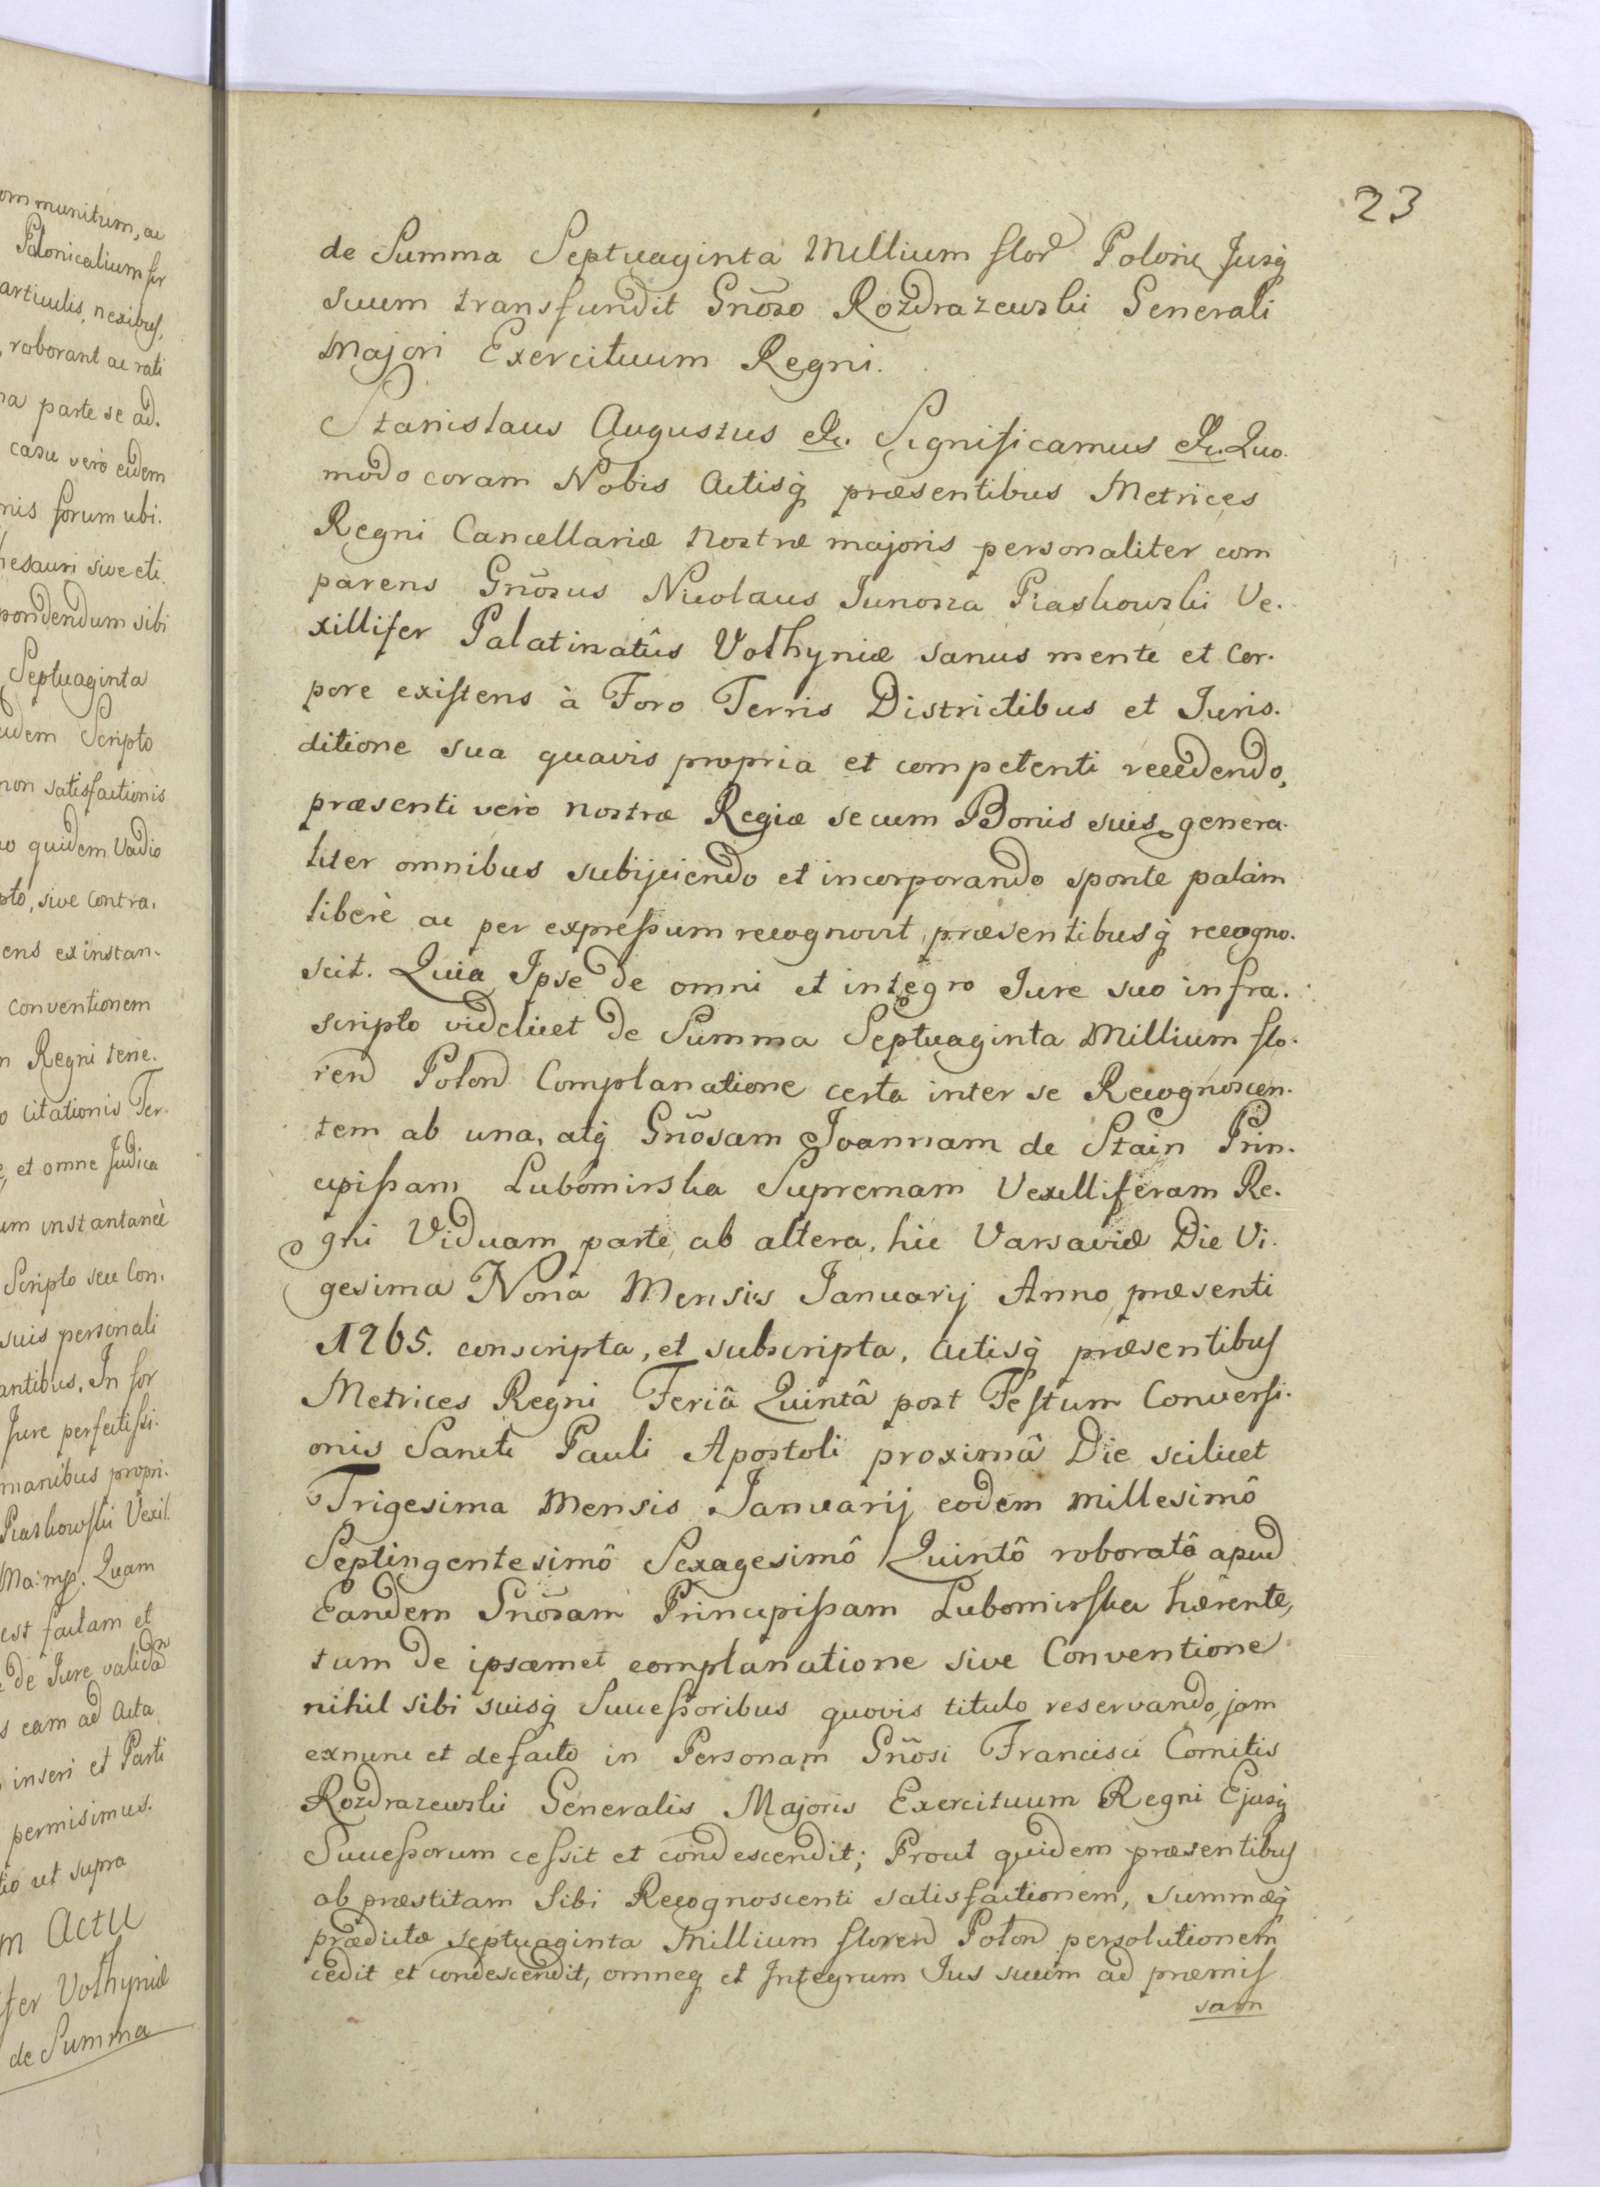 23
de Summa Septuaginta Millium flor Polon Jusq
suum transfundit Gnõso Rozdrazewski Generali
Majori Exercituum Regni.
Stanislaus Augustus etc. Significamus etc. Quo-
modo coram Nobis Actisq præsentibus Metrices
Regni Cancellariæ Nostræ majoris personaliter com
parens Gnõsus Nicolaus Junosza Piaskowski Ve-
xillifer Palatinatûs Volhyniæ sanus mente et Cor-
pore existens à Foro Terris Districtibus et Juris-
ditione sua quavis propria et competenti recedendo,
præsenti verò nostræ Regiæ se cum Bonis suis genera-
liter omnibus subijciendo et incorporando sponte palàm
liberè ac per expressum recognovit præsentibusq recogno-
scit. Quia Ipse de omni et integro Jure suo infra-
scripto videlicet de Summa Septuaginta Millium flo-
ren Polon Complanatione certa inter se Recognoscen-
tem ab una, atq Gnõsam Joannam de Stain Prin-
cipissam Lubomirska Supremam Vexilliferam Re-
gni Viduam parte ab altera, hic Varsaviæ Die Vi-
gesima Nona Mensis Januarij Anno præsenti
1765. conscripta, et subscripta, Actisq præsentibus
Metrices Regni Feriâ Quintâ post Festum Conversi-
onis Sancti Pauli Apostoli proximâ Die scilicet
Trigesima Mensis Januarij eodem Millesimô
Septingentesimô Sexagesimô Quintô roboratâ apud
Eandem Gnõsam Principissam Lubomirska hærente,
tum de ipsamet complanatione sive Conventione
nihil sibi suisq Successoribus quovis titulo reservando, jam
exnunc et defacto in Personam Gnõsi Francisci Comitis
Rozdrazewski Generalis Majoris Exercituum Regni Ejusq
Successorum cessit et condescendit; Prout quidem præsentibus
ob præstitam Sibi Recognoscenti satisfactionem, summæq
prædictæ septuaginta Millium floren Polon persolutionem
cedit et condescendit, omneq et Integrum Jus suum ad præmis
sam
ommunitum, ac
Polonicalium
articulis, nexibus,
roborant ac rati
parte se ad.
casu verò eidem
nis forum ubi.
hesauri sive eti
pondendum sibi
Septuaginta
eidem Scripto
non satisfactionis
quidem Vadio
pto, sive Contra.
ens exinstan-
conventionem
Regni terre.
citationis Ter
et omne Judica
um instantaneè
Scripto seu Con.
suis personali
antibus, In for
Jure perfectissi-
manibus propri-
Piaskowski Vexil
Ma: mp. Quam
est factam et
de Jure validam
eam ad Acta
inseri et Parti
permisimus.
tio ut supra
m Actu
fer Volhyniæ
de Summa